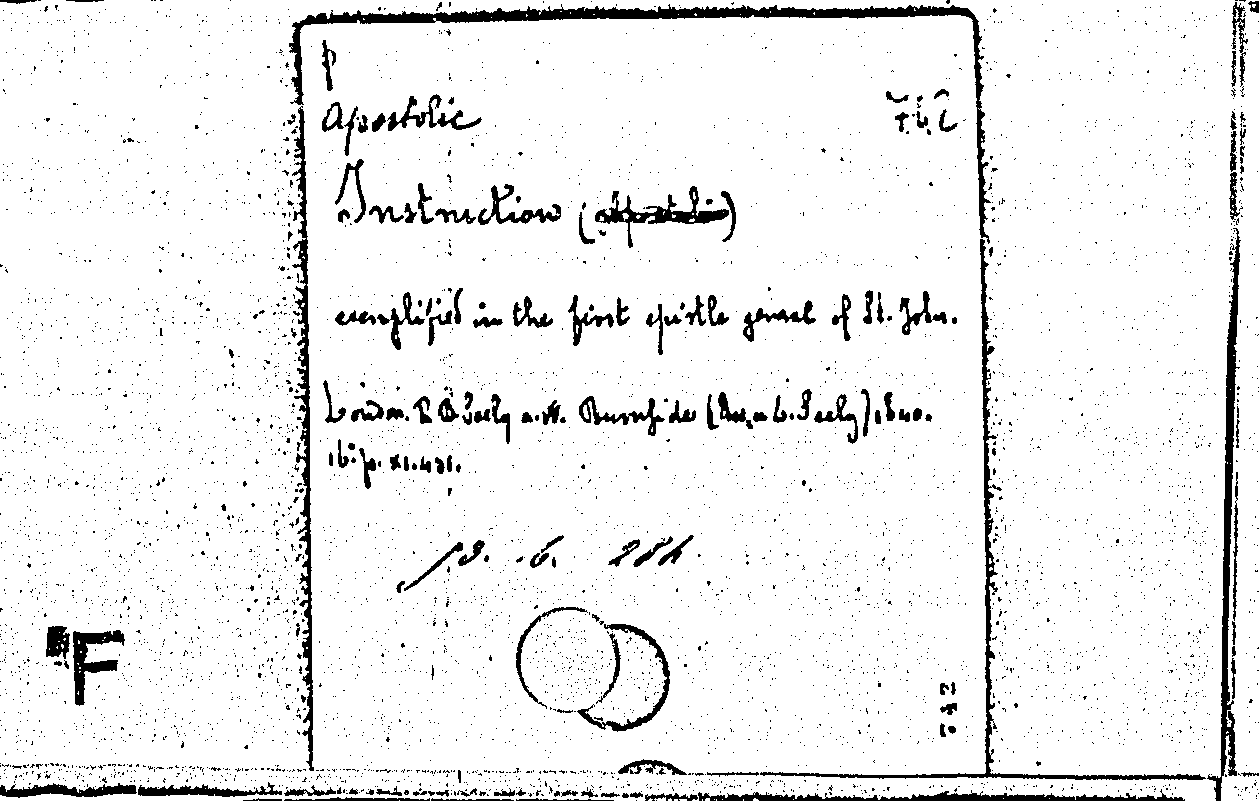 p
Apostolic 742
Instruction (Apostolic)
exemplified in the first epistle general of St. John.
London. R B Seely a. W. Burnside (Aus, a L. Seely) 1840.
16° p. XI. 431.
p. 6. 284
742
F